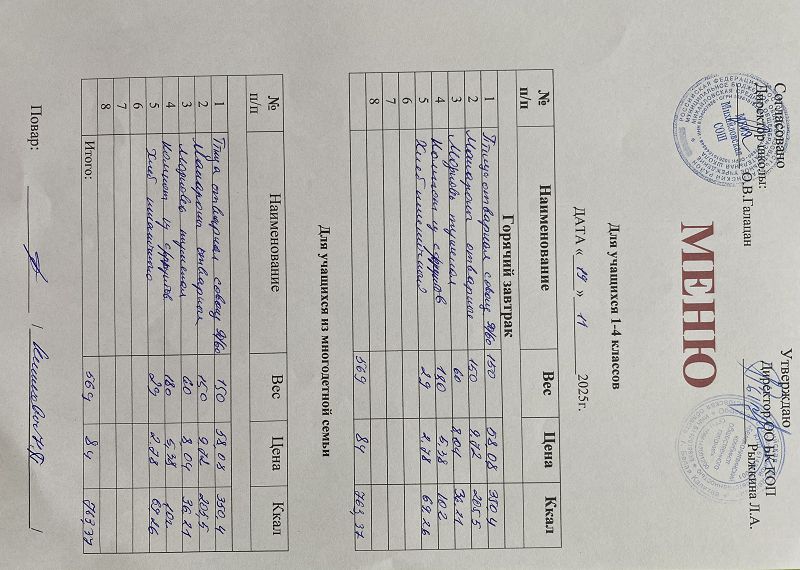 Согласовано
Директор школы:
О.В.Галацан
Утверждаю
Директор ОО БК КОП
Рыжкина Л.А.
МЕНЮ
Для учащихся 1-4 классов
ДАТА « 19 » 11 2025г.
№ п/п Наименование Вес Цена Ккал
Горячий завтрак
1 Птица отварная с овощ 90/60 150 58,08 350,4
2 Макароны отварные 150 9.72 205,5
3 Морковь тушеная 60 8,04 36.21
4 Компот из с/фруктов 180 5,38 102
5 Хлеб пшеничный 29 2.78 69.26
6
7
8 569 84 763,37
Для учащихся из многодетной семьи
№ п/п Наименование Вес Цена Ккал
1 Птица отварная с овощ 90/60 150 58,08 350,4
2 Макароны отварная 150 9.72 205,5
3 Морковь тушеная 60 8,04 36.21
4 Компот из с/фруктов 180 5,38 102
5 Хлеб пшеничный 29 2.78 69.26
6
7
8
Итого: 569 84 763,37
Повар: / /